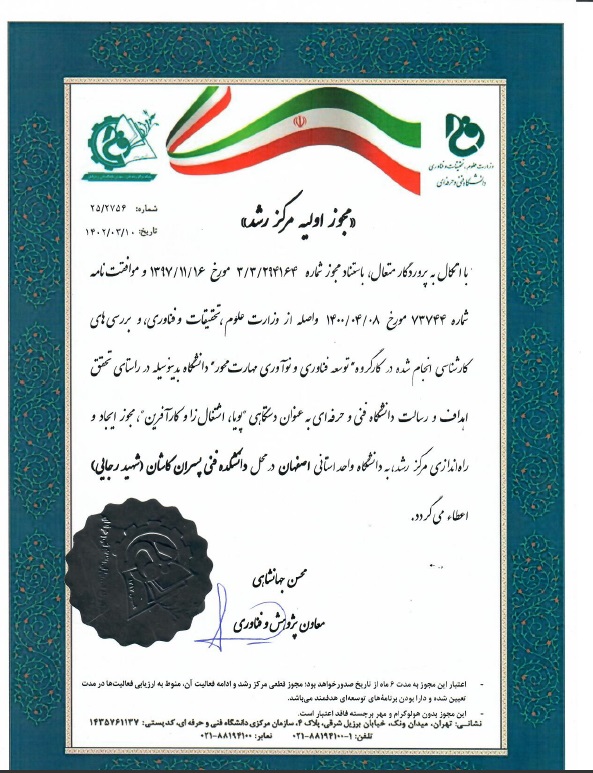 وزارت علوم، تحقیقات و فناوری
دانشگاه فنی و حرفه‌ای
شماره: ۲۵/۲۷۵۶
تاریخ: ۱۴۰۲/۰۳/۱۰
«مجوز اولیه مرکز رشد»
با اتکال به پروردگار متعال، باستناد مجوز شماره ۳/۳/۲۹۴۱۶۴ مورخ ۱۳۹۷/۱۱/۱۶ و موافقت نامه
شماره ۷۳۷۴۴ مورخ ۱۴۰۰/۰۴/۰۸ واصله از وزارت علوم، تحقیقات و فناوری، و بررسی های
کارشناسی انجام شده در کارگروه "توسعه فناوری و نوآوری مهارت محور" دانشگاه بدینوسیله در راستای تحقق
اهداف و رسالت دانشگاه فنی و حرفه ای به عنوان دستگاهی "پویا، اشتغال زا و کارآفرین"، مجوز ایجاد و
راه اندازی مرکز رشد، به دانشگاه واحد استانی اصفهان در محل دانشکده فنی پسران کاشان (شهید رجایی)
اعطاء می گردد.
محسن جهانشاهی
معاون پژوهش و فناوری
- اعتبار این مجوز به مدت ۶ ماه از تاریخ صدور خواهد بود؛ مجوز قطعی مرکز رشد و ادامه فعالیت آن، منوط به ارزیابی فعالیت‌ها در مدت
تعیین شده و دارا بودن برنامه‌های توسعه‌ای هدفمند می‌باشد.
- این مجوز بدون هولوگرام و مهر برجسته فاقد اعتبار است.
نشانی: تهران، میدان ونک، خیابان برزیل شرقی، پلاک ۴، سازمان مرکزی دانشگاه فنی و حرفه ای، کدپستی: ۱۴۳۵۷۶۱۱۳۷
تلفن: ۱-۸۸۱۹۴۱۰۰-۰۲۱ نمابر: ۸۸۱۹۴۱۰۰-۰۲۱